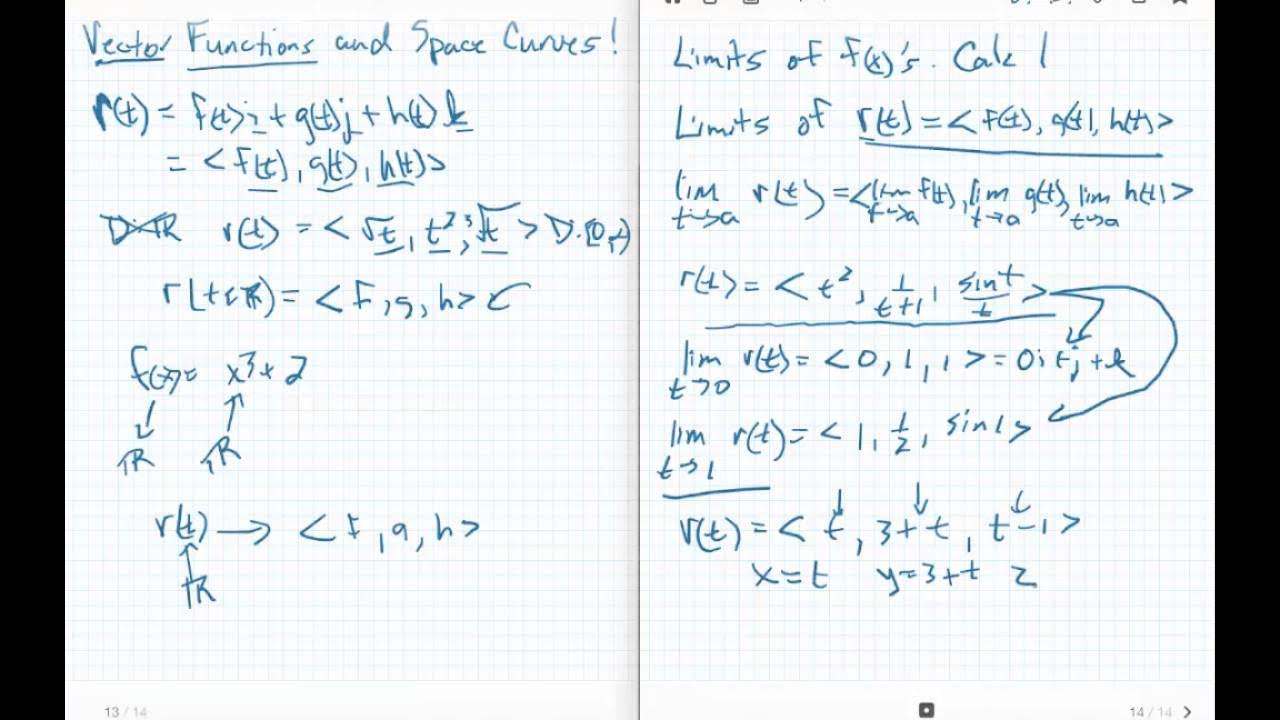 Vector Functions and Space Curves!
r(t) = f(t)i + g(t)j + h(t)k
= <f(t), g(t), h(t)>
r(t) = <√t, t², ³√t> D:[0,
r(t∈ℝ) = <f, g, h>
f(x) = x³+2
ℝ ℝ
r(t) → <f, g, h>
ℝ
13 / 14
Limits of f(x)'s. Calc 1
Limits of r(t) = <f(t), g(t), h(t)>
lim t→a r(t) = <lim t→a f(t), lim t→a g(t), lim t→a h(t)>
r(t) = <t², 1/t+1, sin t/t>
lim t→0 r(t) = <0, 1, 1> = 0i + j + k
lim t→1 r(t) = <1, 1/2, sin 1>
r(t) = <t, 3+t, t-1>
x=t y=3+t z
14 / 14